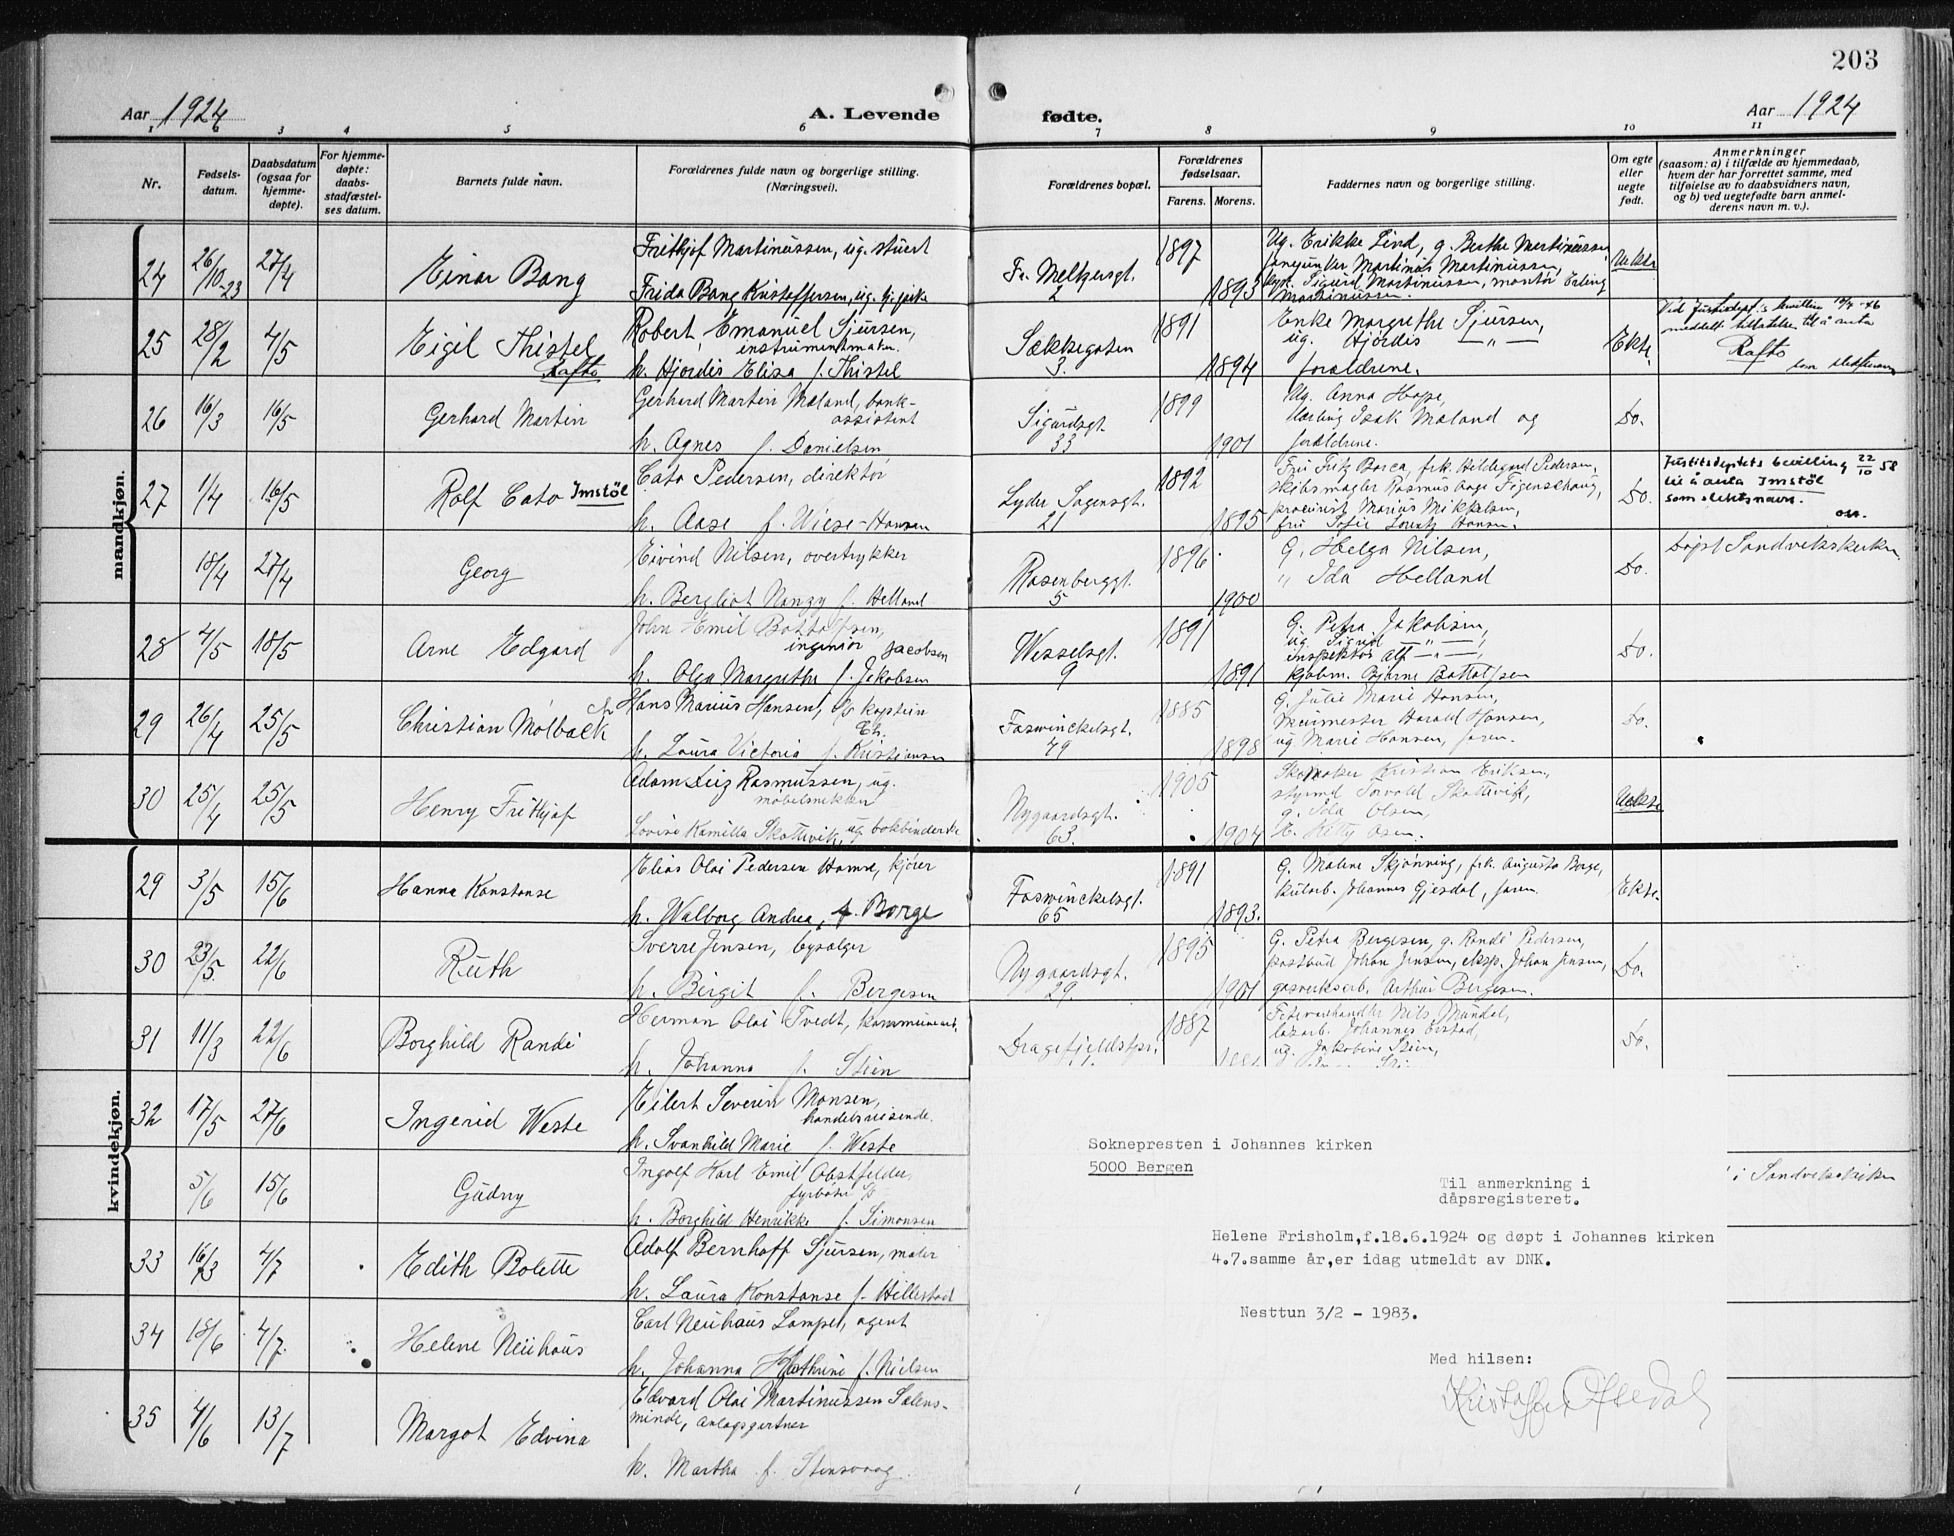 203
Aar 1924
A. Levende
fødte.
Aar 1924
1 2 3 4 5 6 7 8 9 10 11
Nr.
Fødsels-
datum.
Daabsdatum
(ogsaa for
hjemme-
døpte).
For hjemme-
døpte:
daabs-
stadfæstel-
ses datum.
Barnets fulde navn.
Forældrenes fulde navn og borgerlige stilling.
(Næringsvei).
Forældrenes bopæl.
Forældrenes
fødselsaar.
Farens. Morens.
Faddernes navn og borgerlige stilling.
Om egte
eller
uegte
født.
Anmerkninger
(saasom: a) i tilfælde av hjemmedaab,
hvem der har forrettet samme, med
tilføielse av to daabsvidners navn,
og b) ved uegtefødte barn anmel-
derens navn m. v.).
mandkjøn.
24 26/10 23 27/4 Einar Bang
Frithjof Martinussen, ug. stuert
Frida Bang Kristoffersen, ug.
Fr. Meltzersgt.
2
1897
1893
Ug. Erikke Lind, g. Berthe Martinussen,
Martinus Martinussen,
Sigurd Martinussen, montør Erling
Martinussen.
Uekte
25 28/2 4/5 Eigil Thistel
Rafto
Robert Emanuel Sjursen,
instrumentmaker.
h. Hjordis Eliza f. Thistel
Sækkegaten
3.
1891
1894
Enke Margrethe Sjursen,
ug. Hjordis — " —
forældrene.
Ekte.
Rafto
26 16/3 16/5 Gerhard Martin
Gerhard Martin Mæland, bank-
assistent
h. Agnes f. Danielsen
Sigurdsgt.
33
1899
1901
Ug. Anna Hope,
Isak Mæland og
forældrene.
Do.
27 1/4 16/5 Rolf Cato Imstöl
Cato Pedersen, direktør
h. Aase f. Wiese-Hansen
Lyder Sagensgt.
21
1892
1895
frk. Hildegard Pedersen,
skibsmægler Rasmus Figenschoug,
prokurist Marius Mikkelsen,
fru Sofie Hansen.
Do.
Justitsdeptets bevilling 22/10 58
til å anta Imstöl
som slektsnavn.
18/4 27/4 Georg
Eivind Nilsen, overtrykker
h. Bergliot Nanzy f. Helland
Rosenberggt.
5
1896
1900
G. Helga Nilsen,
" Ida Helland
Do.
Døpt Sandvikskirken
28 4/5 18/5 Arne Edgard
John Emil Bottolfsen,
ingeniør Jacobsen
h. Olga Margrethe f. Jakobsen
Wesselsgt.
9
1891
1891
G. Petra Jakobsen,
ug. Sigrid — " —,
inspektør Alf — " —,
kjøbm. Bjarne Bottolfsen
Do.
29 26/4 25/5 Christian Mölbach
Hans Marius Hansen, kaptein
Ch.
h. Laura Victoria f. Kristiansen
Foswinckelsgt.
49
1885
1898
G. Julie Marie Hansen,
Murmester Harald Hansen,
ug Marie Hansen, faren.
Do.
30 25/4 25/5 Henry Frithjof
Adam Rasmussen, ug.
møbelsnekker
Lovise Kamilla Skottvik, ug bokbinderske
Nygaardsgt.
63.
1905
1904
Skomaker Kristian Eriksen,
styrmd Torvald Skottvik,
g. Ida Olsen,
Uekte
kvindekjøn.
29 3/5 15/6 Hanna Konstanse
Elias Olai Pedersen Hamre, kjører
h. Walborg Andrea, f. Borge
Foswinckelsgt.
65
1891
1893.
G. Malene Skjønning, frk. Augusta Borge,
kularb. Johannes Gjesdal, faren.
Ekte.
30 23/5. 22/6 Ruth
Sverre Jensen, bysælger
h. Birgit f. Bergesen
Nygaardsgt.
29.
1895
1901
G. Petra Bergesen, g. Randi Pedersen,
postbud Johan Jensen, eksp. Johan Jensen,
gasverksarb. Arthur Bergesen.
Do.
31 11/3 22/6 Borghild Randi
Herman Olai Tvedt, kommunearb.
h. Johanna f. Stien
Dragefjeldstpr.
1887
Fetevarehandler Nils Mundal,
Johannes
ug. Jakobine Stien,
Do.
32 17/5 27/6 Ingerid Weste
Eilert Severin Monsen,
handelsreisende.
h. Svanhild Marie f. Weste
5/6 15/6 Gudny
Ingolf Karl Emil Obstfelder,
fyrbøter
h. Borghild Henrikke f. Simonsen
i Sandvikskirken
33 16/3 4/7 Edith Bolette
Adolf Bernhoff Sjursen, maler
h. Laura Konstanse f. Hillestad
34 18/6 4/7. Helene Neuhaus
Carl Neuhaus Lampe, agent
h. Johanna Kathrine f. Nielsen
35 4/6 13/7 Margot Edvina
Edvard Olai Martinussen Solens-
minde, anlagsgartner
h. Martha f. Stensvaag.
Soknepresten i Johannes kirken
5000 Bergen
Til anmerkning i
dåpsregisteret.
Helene Frisholm,f.18.6.1924 og døpt i Johannes kirken
4.7.samme år,er idag utmeldt av DNK.
Nesttun 3/2 - 1983.
Med hilsen:
Kristoffer Oftedal